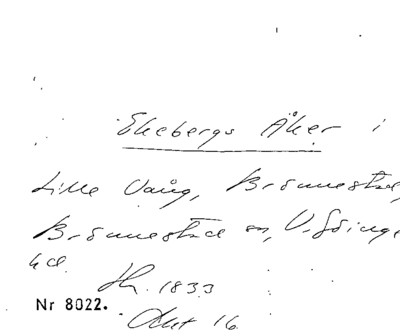 Ekebergs Åker i
Lille Vång, Brönnestad,
Brönnestad sn, V. Göinge
hd.
Jr. 1833
Nr 8022.
Akt 16